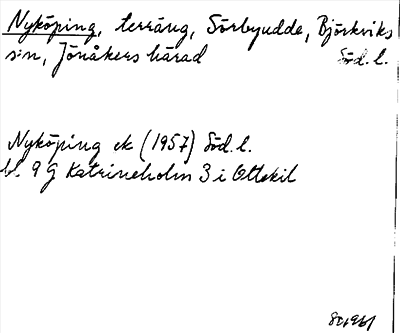 Nyköping, terräng, Sörbyudde, Björkviks
s:n, Jönåkers härad Söd. l.
Nyköping ek (1957) Söd. l.
bl. 9 G Katrineholm 3 i Ottekil